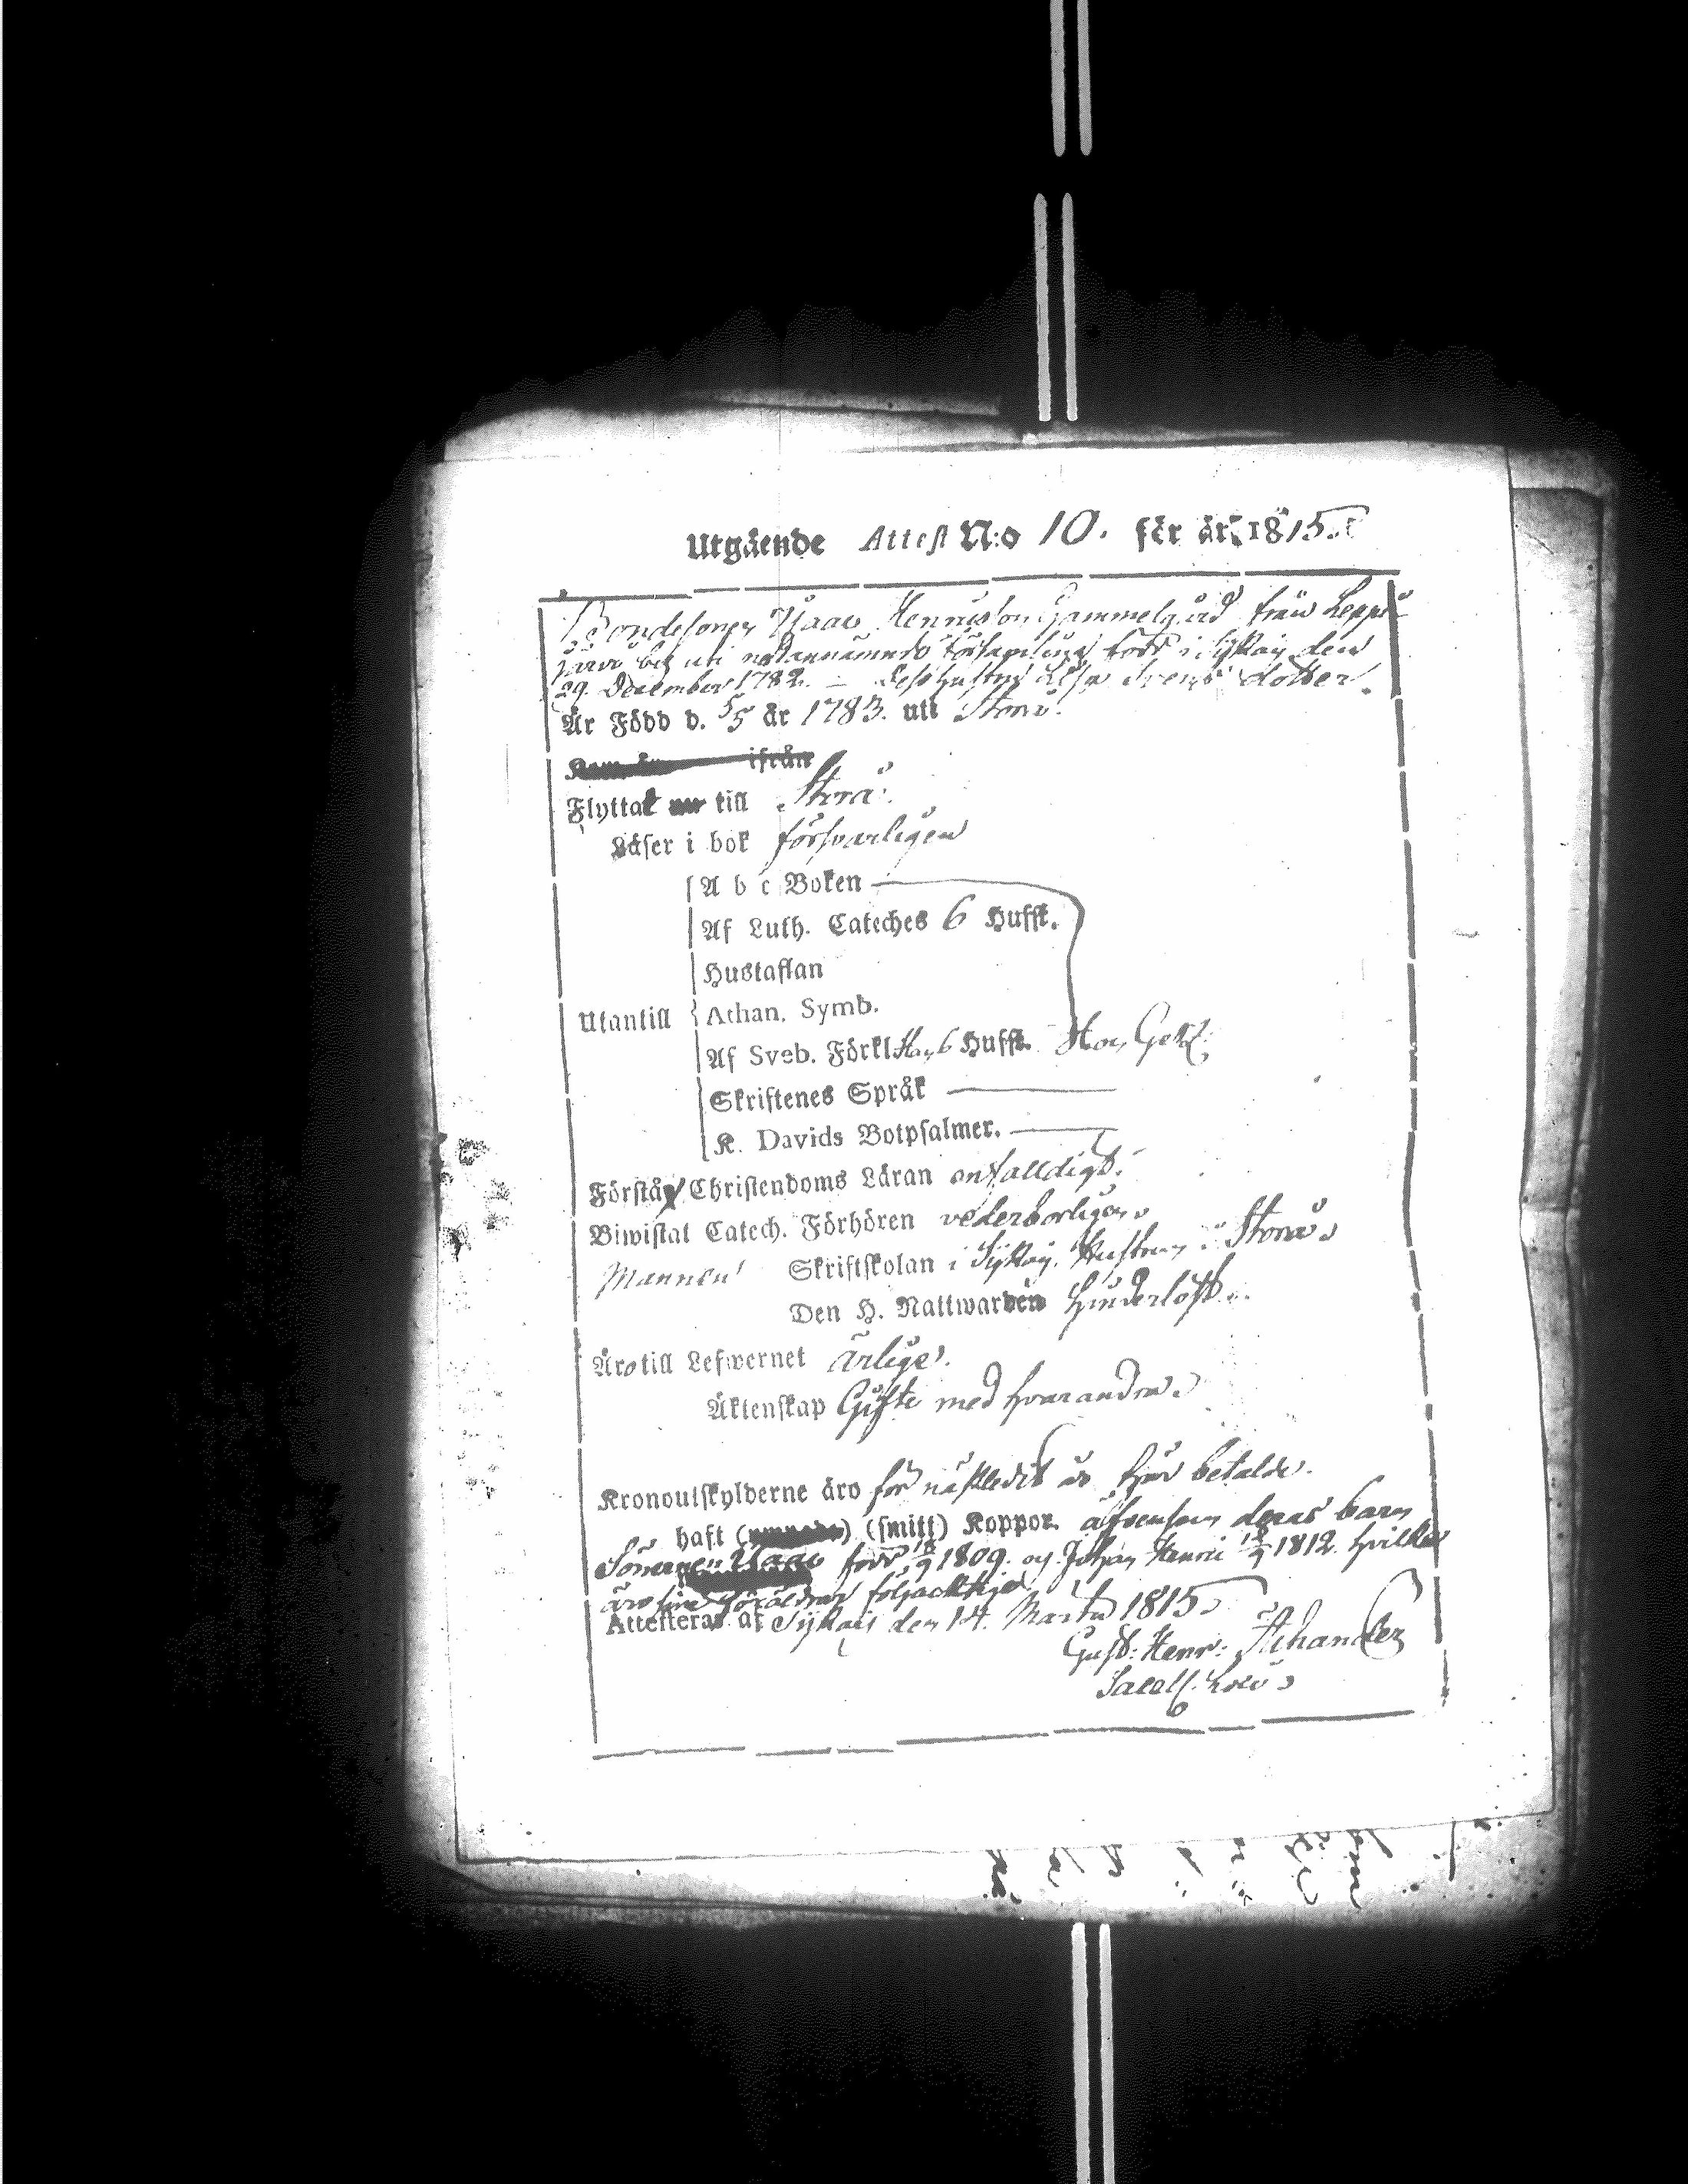 Utgående Attest N:o 10. för år 1815.
Bondesonen Isaac Henricsson Gammelgård från Leppä
järvi by uti nedannämnde församling född i Sykäis den
29. December 1782. – Dess hustru Lisa Svens dotter
Är Född d. 5/5 år 1783. uti Storå
Kom ifrån
Flyttat till Storå.
Läser i bok försvarligen
A b c Boken
Af Luth. Cateches 6 Hufst.
Hustaflan
Utantill Athan. Symb.
Af Sveb. Förkl. 6 Hufst.
Skriftenes Språk
K. Davids Botpsalmer.
Förstå Christendoms Läran enfalldigt.
Biwistat Catech. Förhören vederborligen
Mannen Skriftskolan i Sykäis. Hustrun i Storå
Den H. Nattwarden hinderlöst.
Äro till Lefwernet ärlige.
Äktenskap Gifte med hvarandra
Kronoutskylderne äro för nästledit år här betalde.
haft (smitt) Koppor. äfvensom deras barn
Sönerne Isaac född 1809. og Johan Henric 1812. hvilka
äro sine föräldrar följacktige
Attesteras af Sykäis den 14. Martii 1815
Gust: Henr:
Sacell.